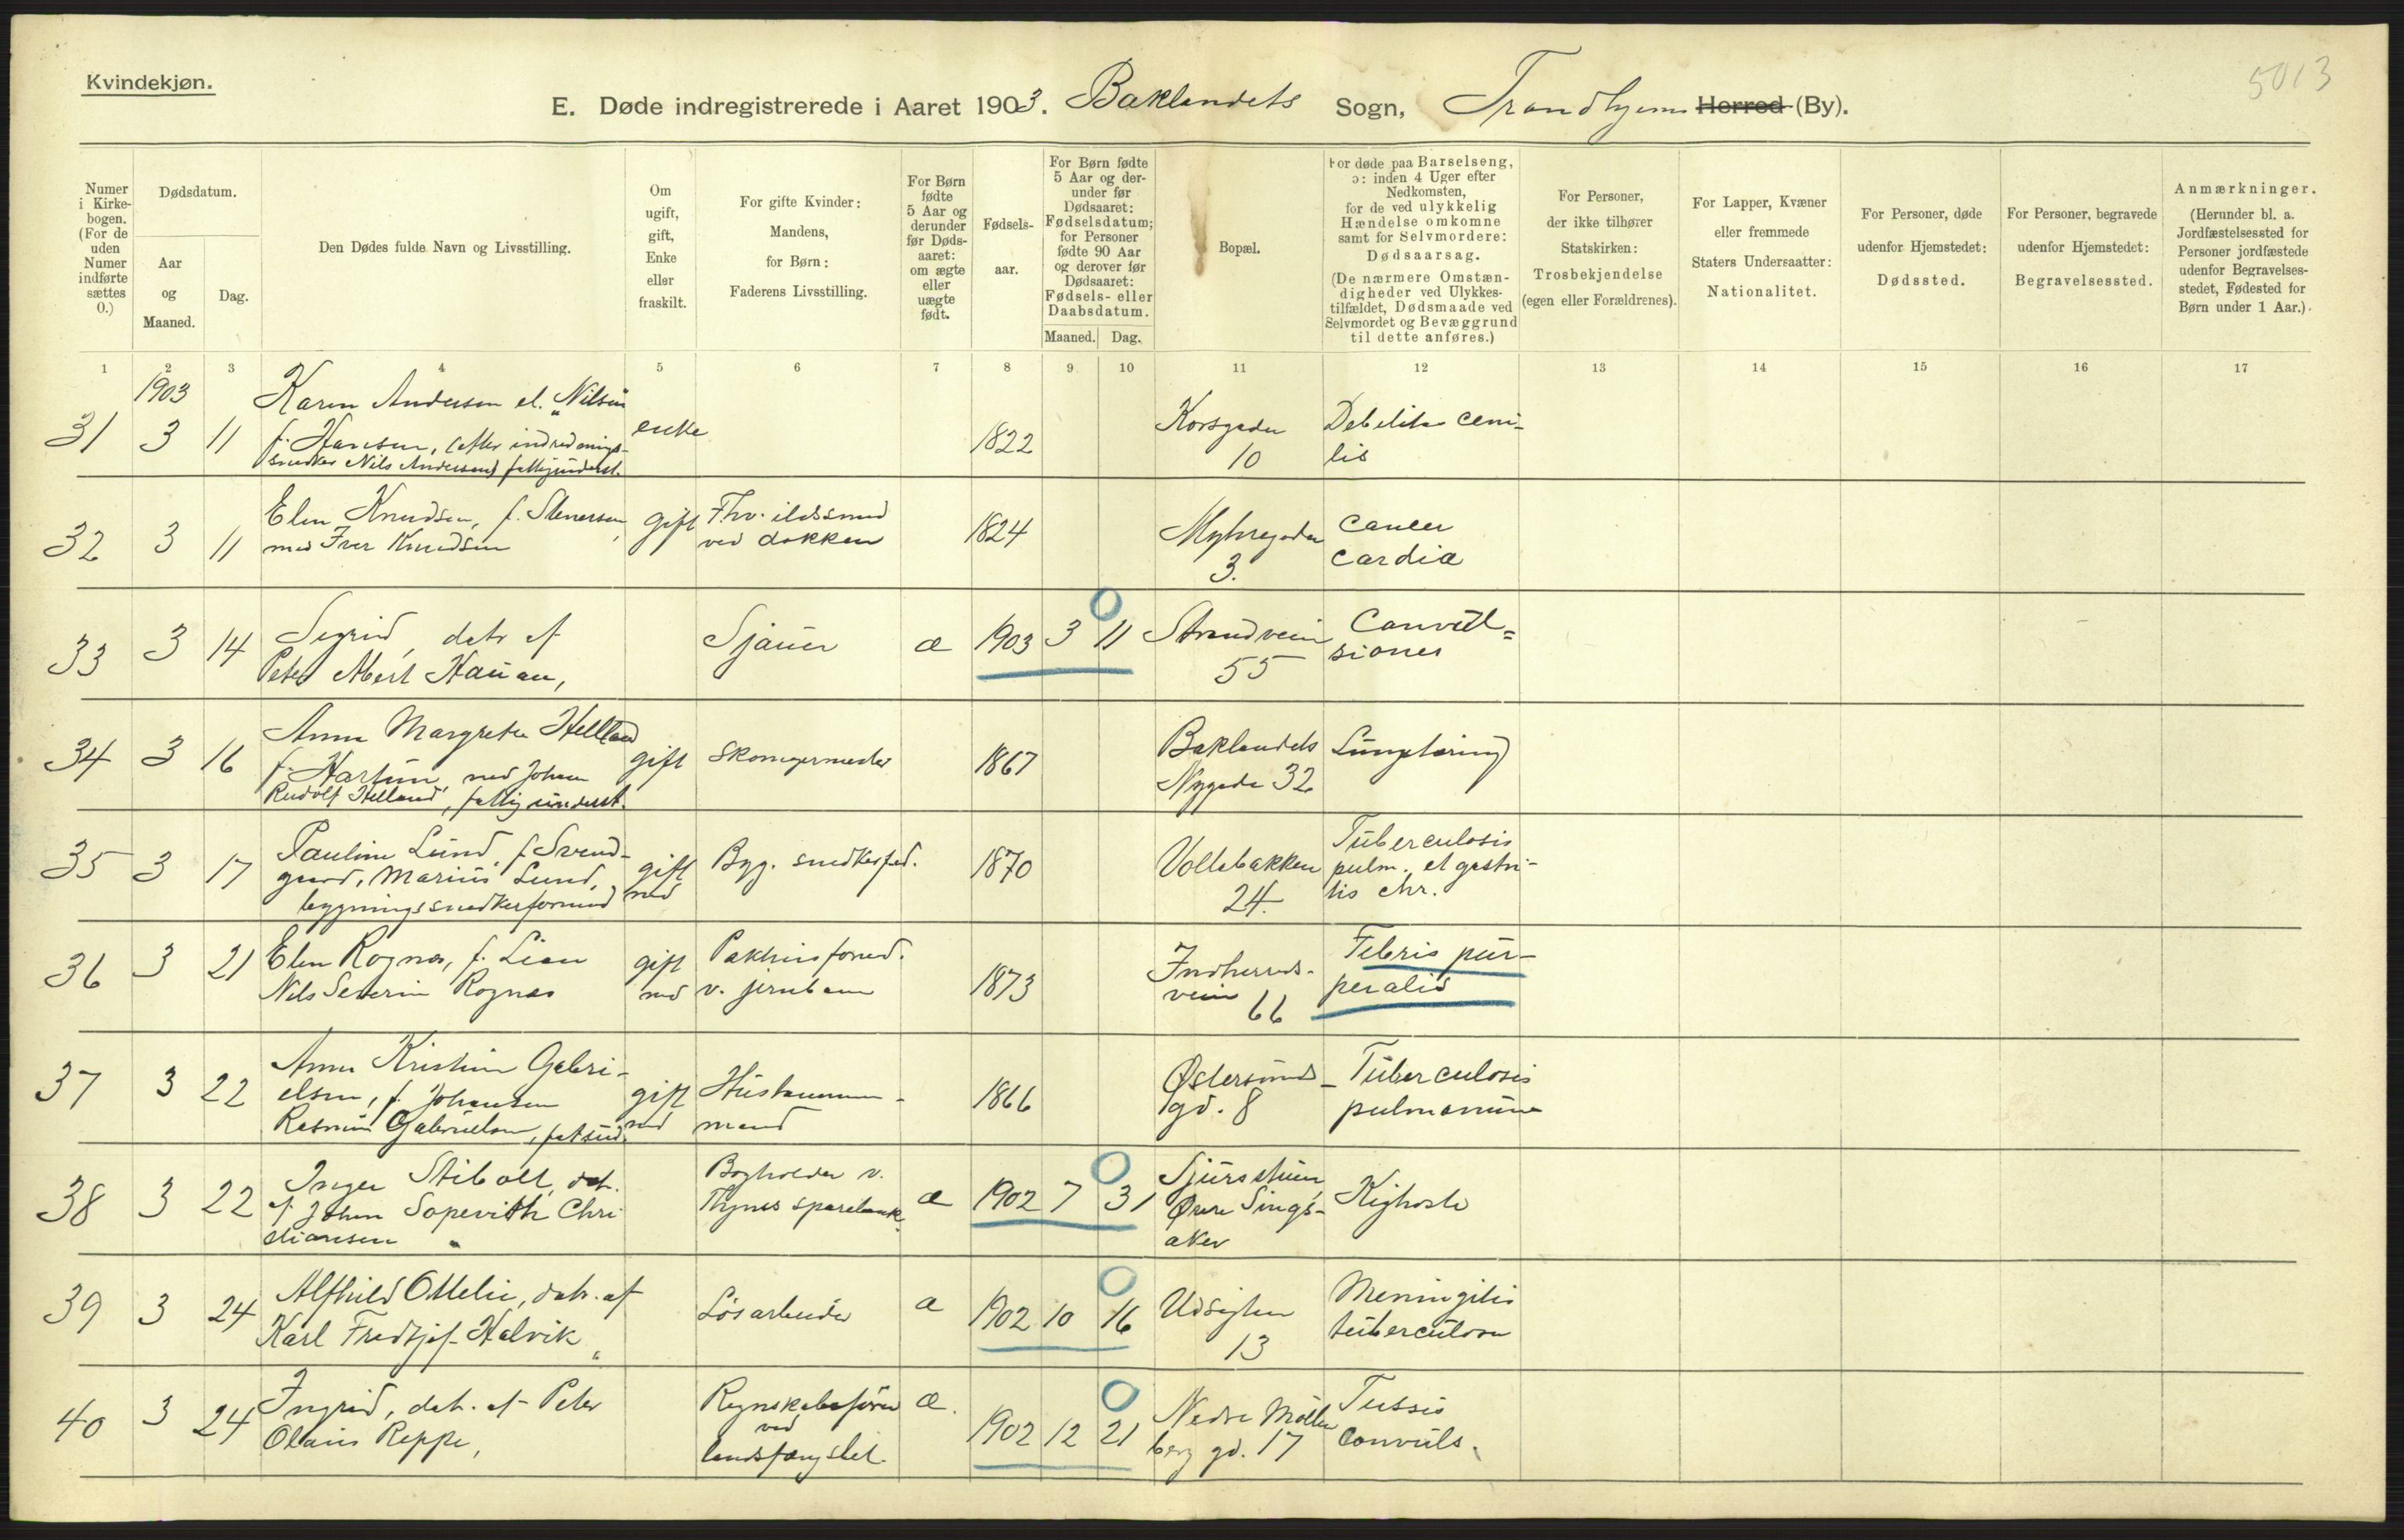 Kvindekjøn.
5013
E. Døde indregistrerede i Aaret 1903. Baklandets Sogn, Trondhjems Herred (By).
Numer i Kirkebogen. (For de uden Numer indførte sættes 0.)
Dødsdatum.
Aar og Maaned.
Dag.
Den Dødes fulde Navn og Livsstilling.
Om ugift, gift, Enke eller fraskilt.
For gifte Kvinder: Mandens, for Børn: Faderens Livsstilling.
For Børn fødte 5 Aar og derunder før Dødsaaret: om ægte eller uægte født.
Fødselsaar.
For Børn fødte 5 Aar og derunder før Dødsaaret: Fødselsdatum; for Personer fødte 90 Aar og derover før Dødsaaret: Fødsels- eller Daabsdatum.
Maaned. Dag.
Bopæl.
For døde paa Barselseng, ɔ: inden 4 Uger efter Nedkomsten, for de ved ulykkelig Hændelse omkomne samt for Selvmordere: Dødsaarsag. (De nærmere Omstændigheder ved Ulykkestilfældet, Dødsmaade ved Selvmordet og Bevæggrund til dette anføres.)
For Personer, der ikke tilhører Statskirken: Trosbekjendelse (egen eller Forældrenes).
For Lapper, Kvæner eller fremmede Staters Undersaatter: Nationalitet.
For Personer, døde udenfor Hjemstedet: Dødssted.
For Personer, begravede udenfor Hjemstedet: Begravelsessted.
Anmærkninger. (Herunder bl. a. Jordfæstelsessted for Personer jordfæstede udenfor Begravelsesstedet, Fødested for Børn under 1 Aar.).
1 2 3 4 5 6 7 8 9 10 11 12 13 14 15 16 17
1903
31 3 11 Karen Andersen el. Nilsen
f. Hansen, (efter indrednings-
snedker Nils Andersen) fattigunderst.
enke
1822
Korsgaden
10
Debilitas ceni-
lis
32 3 11 Elen Knudsen, f. Stenersen,
med Iver Knudsen
gift
Fhv. ildsmed
ved dokken
1824
Myhregaden
3.
Cancer
cardia
33 3 14 Sigrid, datr af
Peter Albert Hauan,
Sjauer
æ 1903 3 11
Strandveien
55
Convul=
sioner
34 3 16 Anne Margrete Helland
f. Hartum, med Johan
Rudolf Helland, fattigunderst.
gift
Skomagermester
1867
Baklandets
Nygade 32
Lungetæring
35 3 17 Pauline Lund, f. Svend-
gaard, Marius Lund,
bygningssnedkerformand
gift
med
Byg. snedkerfod.
1870
Vollabakken
24.
Tuberculosis
pulm. et gastri-
tis chr.
36 3 21 Elen Rognes, f. Lien
Nils Severin Rognes
gift
med
Pakhusformd.
v. jernbanen
1873
Indherreds-
veien 66
Febris pur-
peralis
37 3 22 Anne Kristine Gabri-
elsen, f. Johansen
Rasmus Gabrielsen, fatund.
gift
med
Hustømmer-
mand
1866
Østersunds-
gd. 8
Tuberculosis
pulmonum
38 3 22 Inger Stibolt, dat.
af Johan Sopevith Chri
stiansen
Bogholder v.
Thjems sparebank
æ 1902 7 31
Sjursstuen
Øvre Sings-
aker
Kighoste
39 3 24 Alfhild Ottelie, datr. af
Karl Fredtjof Halvik
Løsarbeider
æ 1902 10 16
Udsigten
13
Meningitis
tuberculosa
40 3 24 Ingrid, dat. af Peter
Olaus Reppe,
Regnskabsfører
ved
landsfængslet.
æ. 1902 12 21
Nedre Møllen
berg gd. 17
Tussis
convuls.